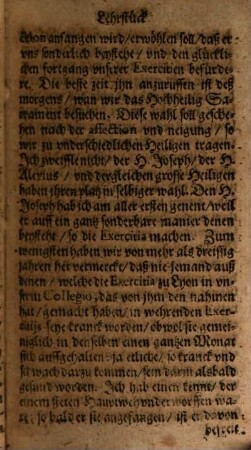 Lehrstück
Lyon anfangen wird/ erwöhlen soll/ daß er
vns sonderlich beystehe/ vnd den glückli-
chen fortgang vnserer Exercitien befürde-
re. Die beste zeit ihn anzuruffen ist deß
morgens/ wan wir das Hochheilig Sa-
crament besuchen. Diese wahl soll gesche-
hen nach der affection vnd neigung/ so
wir zu vnderschiedlichen Heiligen tragen.
Ich zweiffle nicht/ der H. Joseph/ der H.
Alexius/ vnd dergleichen grosse Heiligen
haben jhren platz in selbiger wahl. Den H.
Joseph hab ich am aller ersten genent/ weil
er auff ein gantz sonderbare manier denen
beystehet/ so die Exercitia machen. Zum
wenigsten haben wir von mehr als dreissig
jahren her vermerckt/ daß niemand auß
denen/ welche die Exercitia zu Lyon in vn-
serm Collegio, das von jhm den nahmen
hat/ gemacht haben/ in wehrenden Exer-
citijs seye kranck worden/ obwol sie gemei-
niglich in denselben einen gantzen Monat
sich auffgehalten: ja etliche/ so kranck vnd
schwach darzu kommen/ seindt darin alsbald
gesund worden. Ich hab einen kennt/ der
einem steten Hauptwehe vnderworffen wa-
re: so bald er sie angefangen/ ist er davon
befreit.